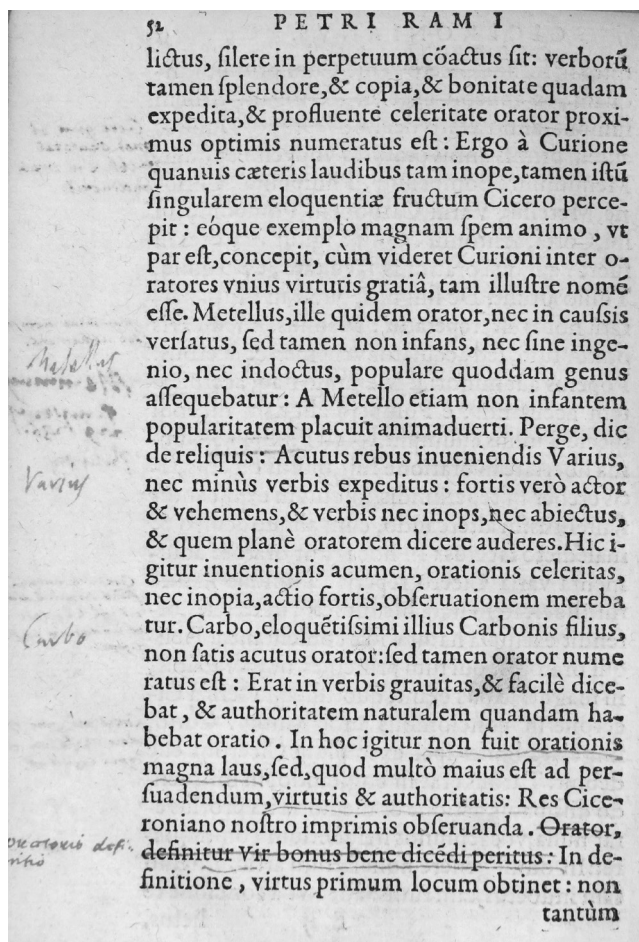 52 PETRI RAMI
lictus, ſilere in perpetuum cóactus ſit: verborũ
tamen ſplendore,& copia,& bonitate quadam
expedita,& profluente celeritate orator proxi-
mus optimis numeratus eſt : Ergo à Curione
quanuis cæteris laudibus tam inope,tamen iſtũ
ſingularem eloquentiæ fructum Cicero perce-
pit : eóque exemplo magnam ſpem animo , vt
par eſt,concepit, cùm videret Curioni inter o-
ratores vnius virtutis gratiâ, tam illuſtre nomẽ
eſſe. Metellus,ille quidem orator,nec in cauſsis
verſatus, ſed tamen non infans, nec ſine inge-
Metellus
nio, nec indoctus, populare quoddam genus
aſſequebatur : A Metello etiam non infantem
popularitatem placuit animaduerti. Perge, dic
de reliquis : Acutus rebus inueniendis Varius,
Varius
nec minùs verbis expeditus : fortis verò actor
& vehemens,& verbis nec inops,nec abiectus,
& quem planè oratorem dicere auderes.Hic i-
gitur inuentionis acumen, orationis celeritas,
nec inopia,actio fortis,obſeruationem mereba
tur. Carbo,eloquẽtiſsimi illius Carbonis filius,
Carbo
non ſatis acutus orator:ſed tamen orator nume
ratus eſt : Erat in verbis grauitas,& facilè dice-
bat , & authoritatem naturalem quandam ha-
bebat oratio . In hoc igitur non fuit orationis
magna laus,ſed,quod multò maius eſt ad per-
ſuadendum,virtutis & authoritatis: Res Cice-
roniano noſtro imprimis obſeruanda . Orator,
oratoris defi-
nitio
definitur Vir bonus bene dicẽdi peritus : In de-
finitione , virtus primum locum obtinet : non
tantùm